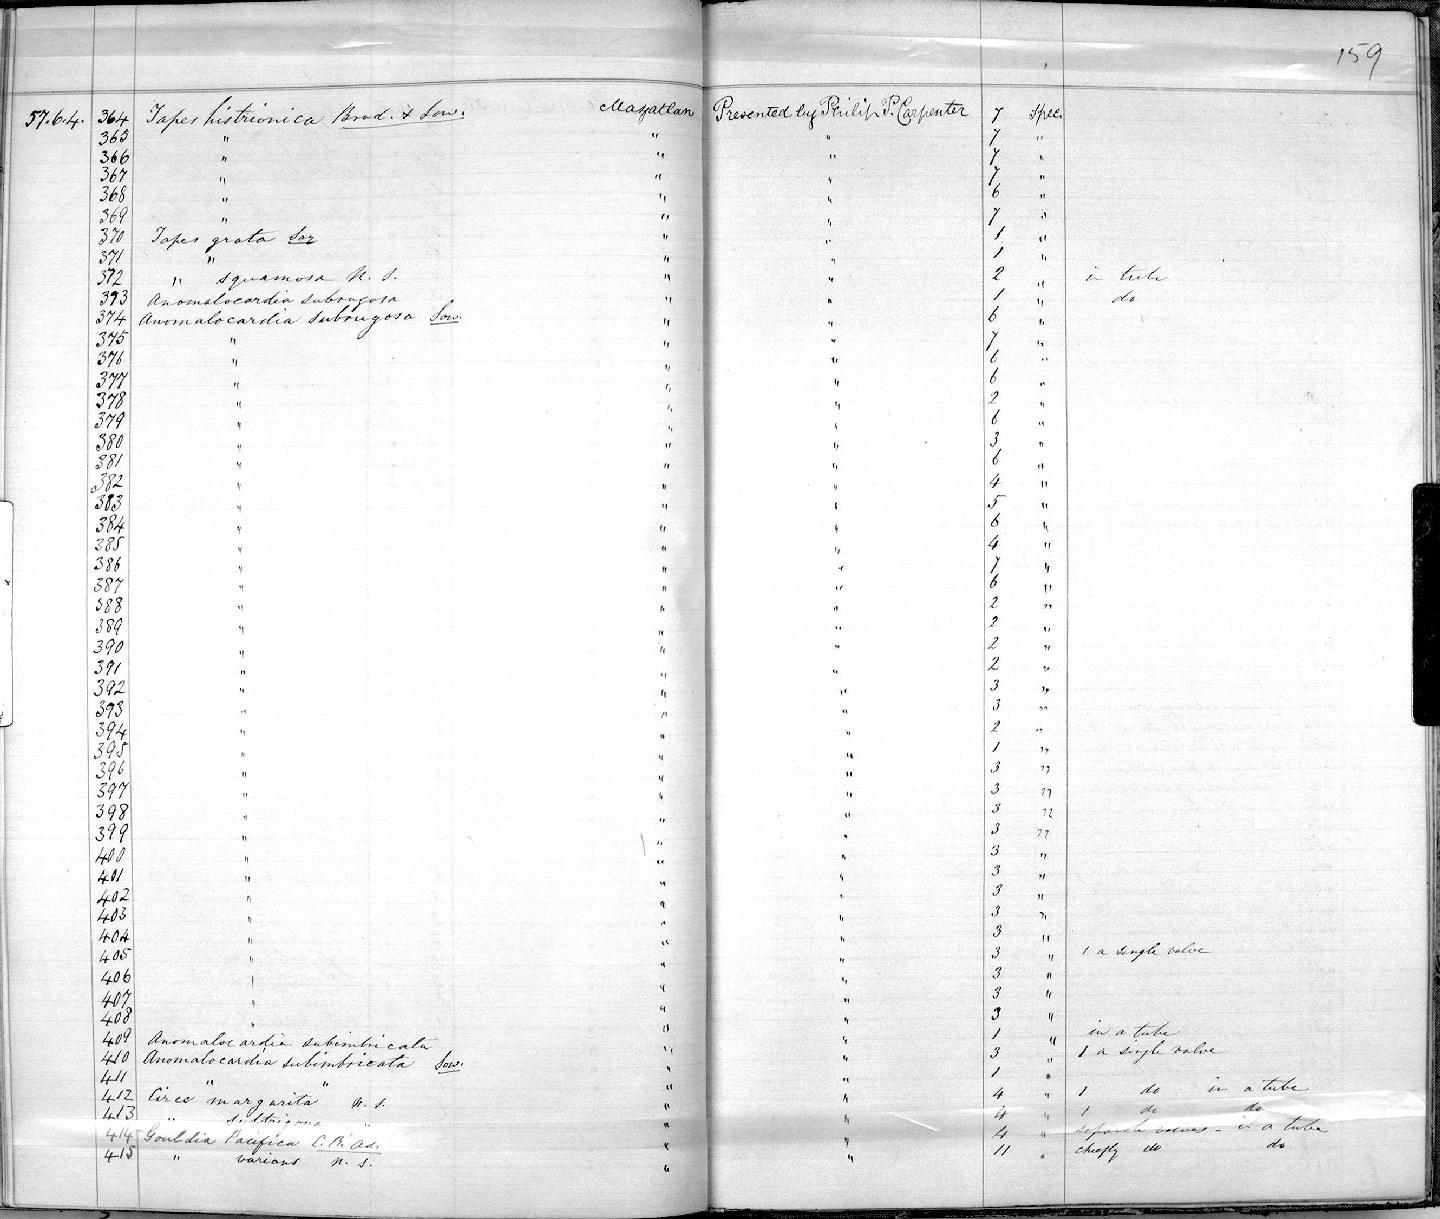 159
57.6.4. 364 Tapes histrionica Brod. & Sow. Mazatlan Presented by Philip P. Carpenter 7 Spec.
365 " " " 7 "
366 " " " 7 "
367 " " " 7 "
368 " " " 6 "
369 " " " 7 "
370 Tapes grata Say " " 1 "
371 " " " 1 "
372 " squamosa N. S. " " 2 " in tube
373 Anomalocardia subrugosa " " 1 " do
374 Anomalocardia subrugosa Sow. " " 6 "
375 " " " 7 "
376 " " " 6 "
377 " " " 6 "
378 " " " 2 "
379 " " " 6 "
380 " " " 3 "
381 " " " 6 "
382 " " " 4 "
383 " " " 5 "
384 " " " 6 "
385 " " " 4 "
386 " " " 7 "
387 " " " 6 "
388 " " " 2 "
389 " " " 2 "
390 " " " 2 "
391 " " " 2 "
392 " " " 3 "
393 " " " 3 "
394 " " " 2 "
395 " " " 1 "
396 " " " 3 "
397 " " " 3 "
398 " " " 3 "
399 " " " 3 "
400 " " " 3 "
401 " " " 3 "
402 " " " 3 "
403 " " " 3 "
404 " " " 3 "
405 " " " 3 " 1 a single valve
406 " " " 3 "
407 " " " 3 "
408 " " " 3 "
409 Anomalocardia subimbricata " " 1 " in a tube
410 Anomalocardia subimbricata Sow. " " 3 " 1 a single valve
411 " " " " 1 "
412 Circe margarita N. S. " " 4 " 1 do in a tube
413 " subtrigona " " " 4 " 1 do do
414 Gouldia Pacifica C. B. Ad. " " 4 " separate valves - in a tube
415 " varians N. S. " " 11 " chiefly do do